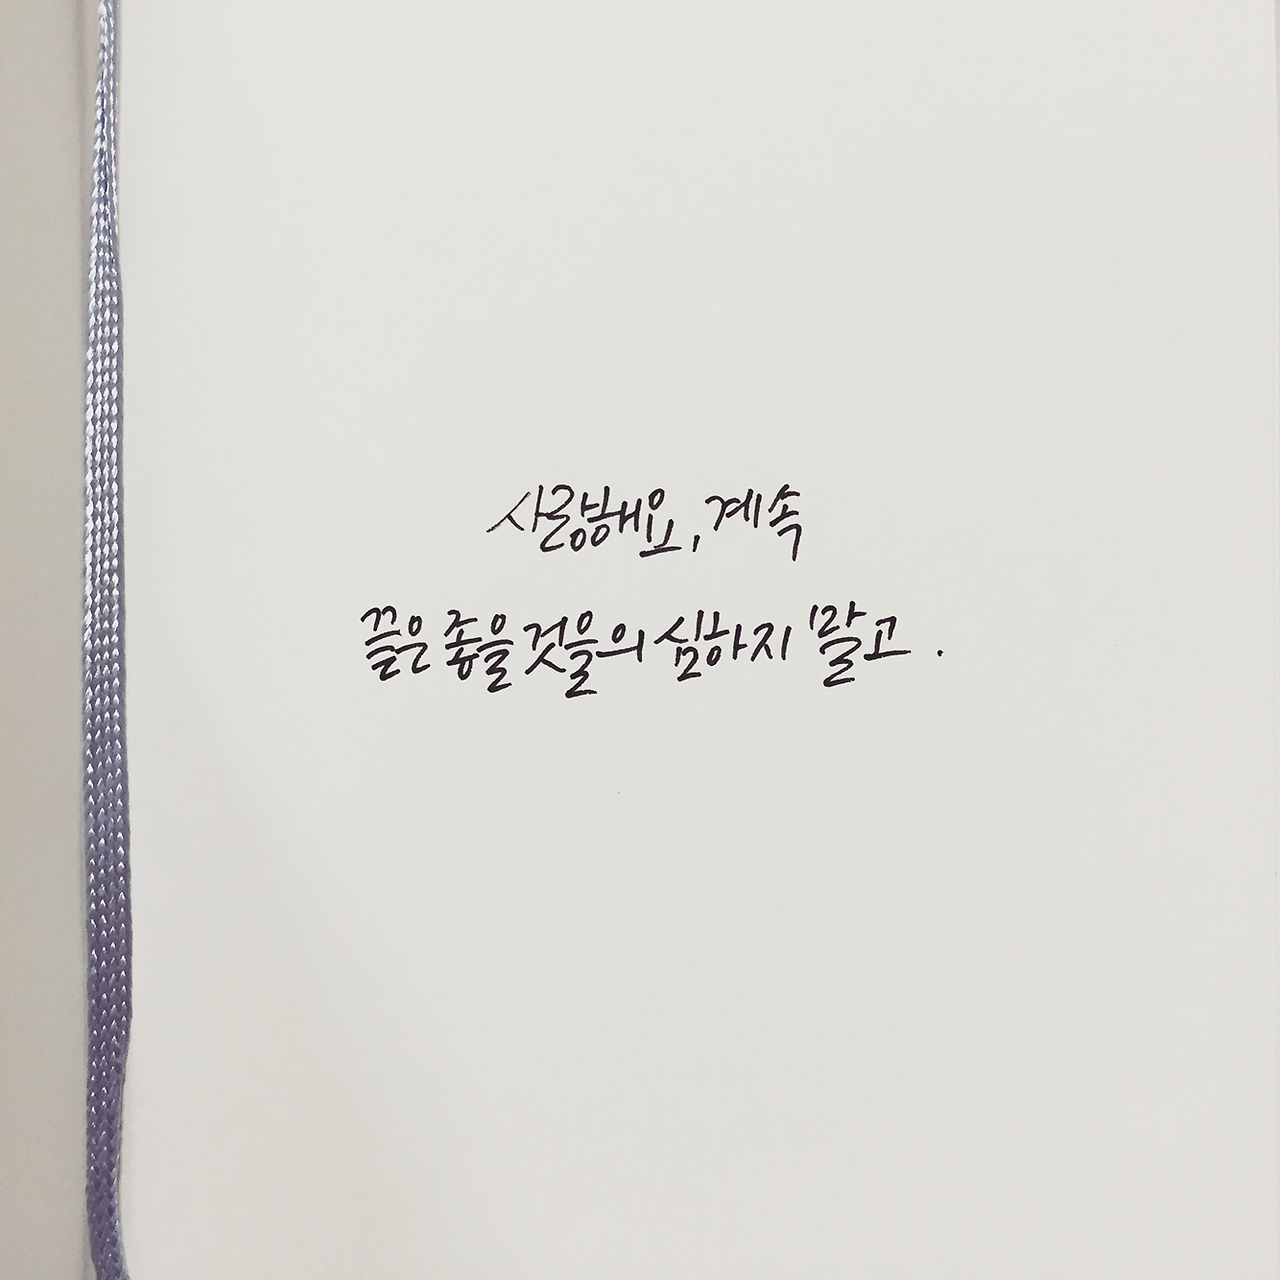 사랑해요, 계속
끝은 좋을 것을 의심하지 말고.